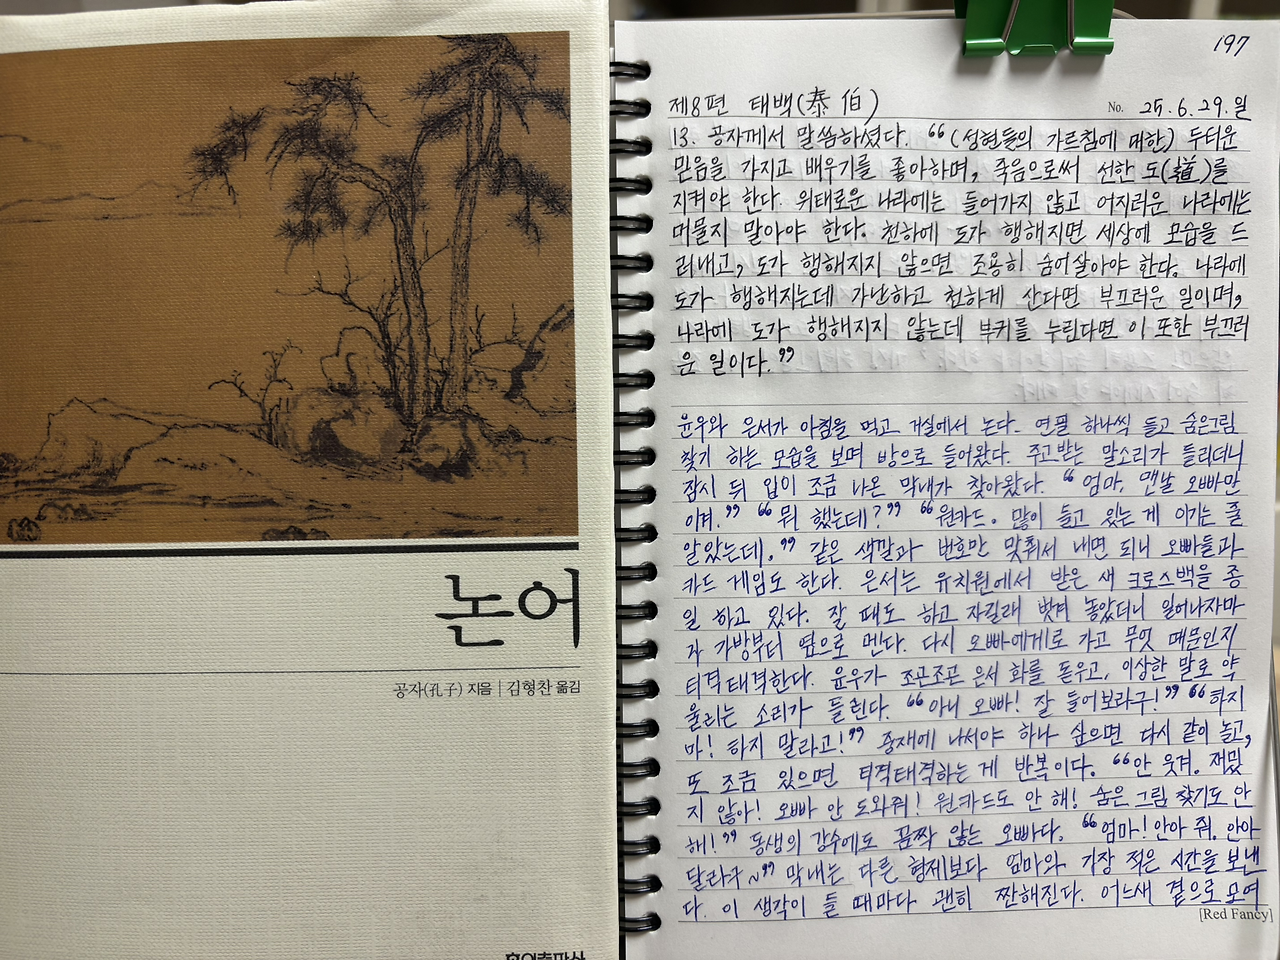 논어
공자(孔子) 지음 | 김형찬 옮김
197
제8편 태백(泰伯)
No. 25.6.29.일
13. 공자께서 말씀하셨다. “(성현들의 가르침에 대한) 두터운
믿음을 가지고 배우기를 좋아하며, 죽음으로써 선한 도(道)를
지켜야 한다. 위태로운 나라에는 들어가지 않고 어지러운 나라에는
머물지 말아야 한다. 천하에 도가 행해지면 세상에 모습을 드
러내고, 도가 행해지지 않으면 조용히 숨어살아야 한다. 나라에
도가 행해지는데 가난하고 천하게 산다면 부끄러운 일이며,
나라에 도가 행해지지 않는데 부귀를 누린다면 이 또한 부끄러
운 일이다.”
윤우와 은서가 아침을 먹고 거실에서 논다. 연필 하나씩 들고 숨은그림
찾기 하는 모습을 보며 방으로 들어왔다. 주고받는 말소리가 들리더니
잠시 뒤 입이 조금 나온 막내가 찾아왔다. “엄마, 맨날 오빠만
이겨.” “뭐 했는데?” “원카드. 많이 들고 있는 게 이기는 줄
알았는데.” 같은 색깔과 번호만 맞춰서 내면 되니 오빠들과
카드 게임도 한다. 은서는 유치원에서 받은 새 크로스백을 종
일 하고 있다. 잘 때도 하고 자길래 벗겨 놓았더니 일어나자마
자 가방부터 옆으로 멘다. 다시 오빠에게로 가고 무엇 때문인지
티격태격한다. 윤우가 조곤조곤 은서 화를 돋우고, 이상한 말로 약
올리는 소리가 들린다. “아니 오빠! 잘 들어보라구!” “하지
마! 하지 말라고!” 중재에 나서야 하나 싶으면 다시 같이 놀고,
또 조금 있으면 티격태격하는 게 반복이다. “안 웃겨. 재밌
지 않아! 오빠 안 도와줘! 원카드도 안 해! 숨은 그림 찾기도 안
해!” 동생의 강수에도 끔쩍 않는 오빠다. “엄마! 안아 줘. 안아
달라구~” 막내는 다른 형제보다 엄마와 가장 적은 시간을 보낸
다. 이 생각이 들 때마다 괜히 짠해진다. 어느새 곁으로 모여
[Red Fancy]